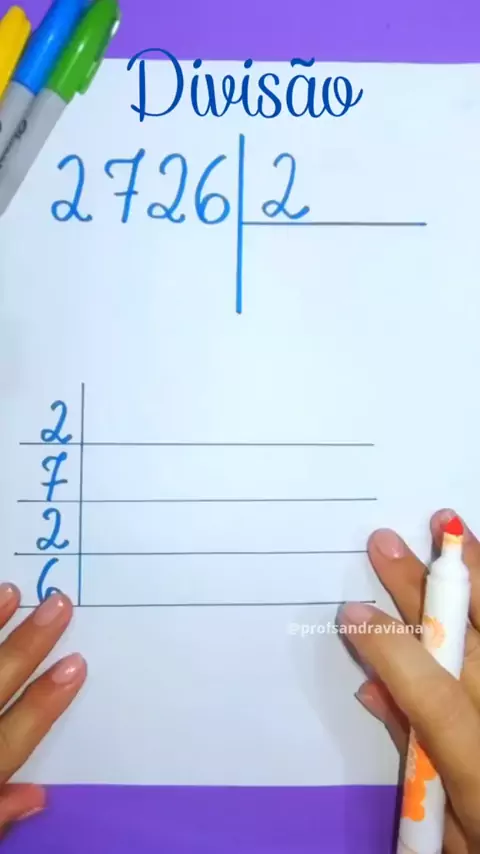 Divisão
2726 2
2
7
2
6
@profsandraviana